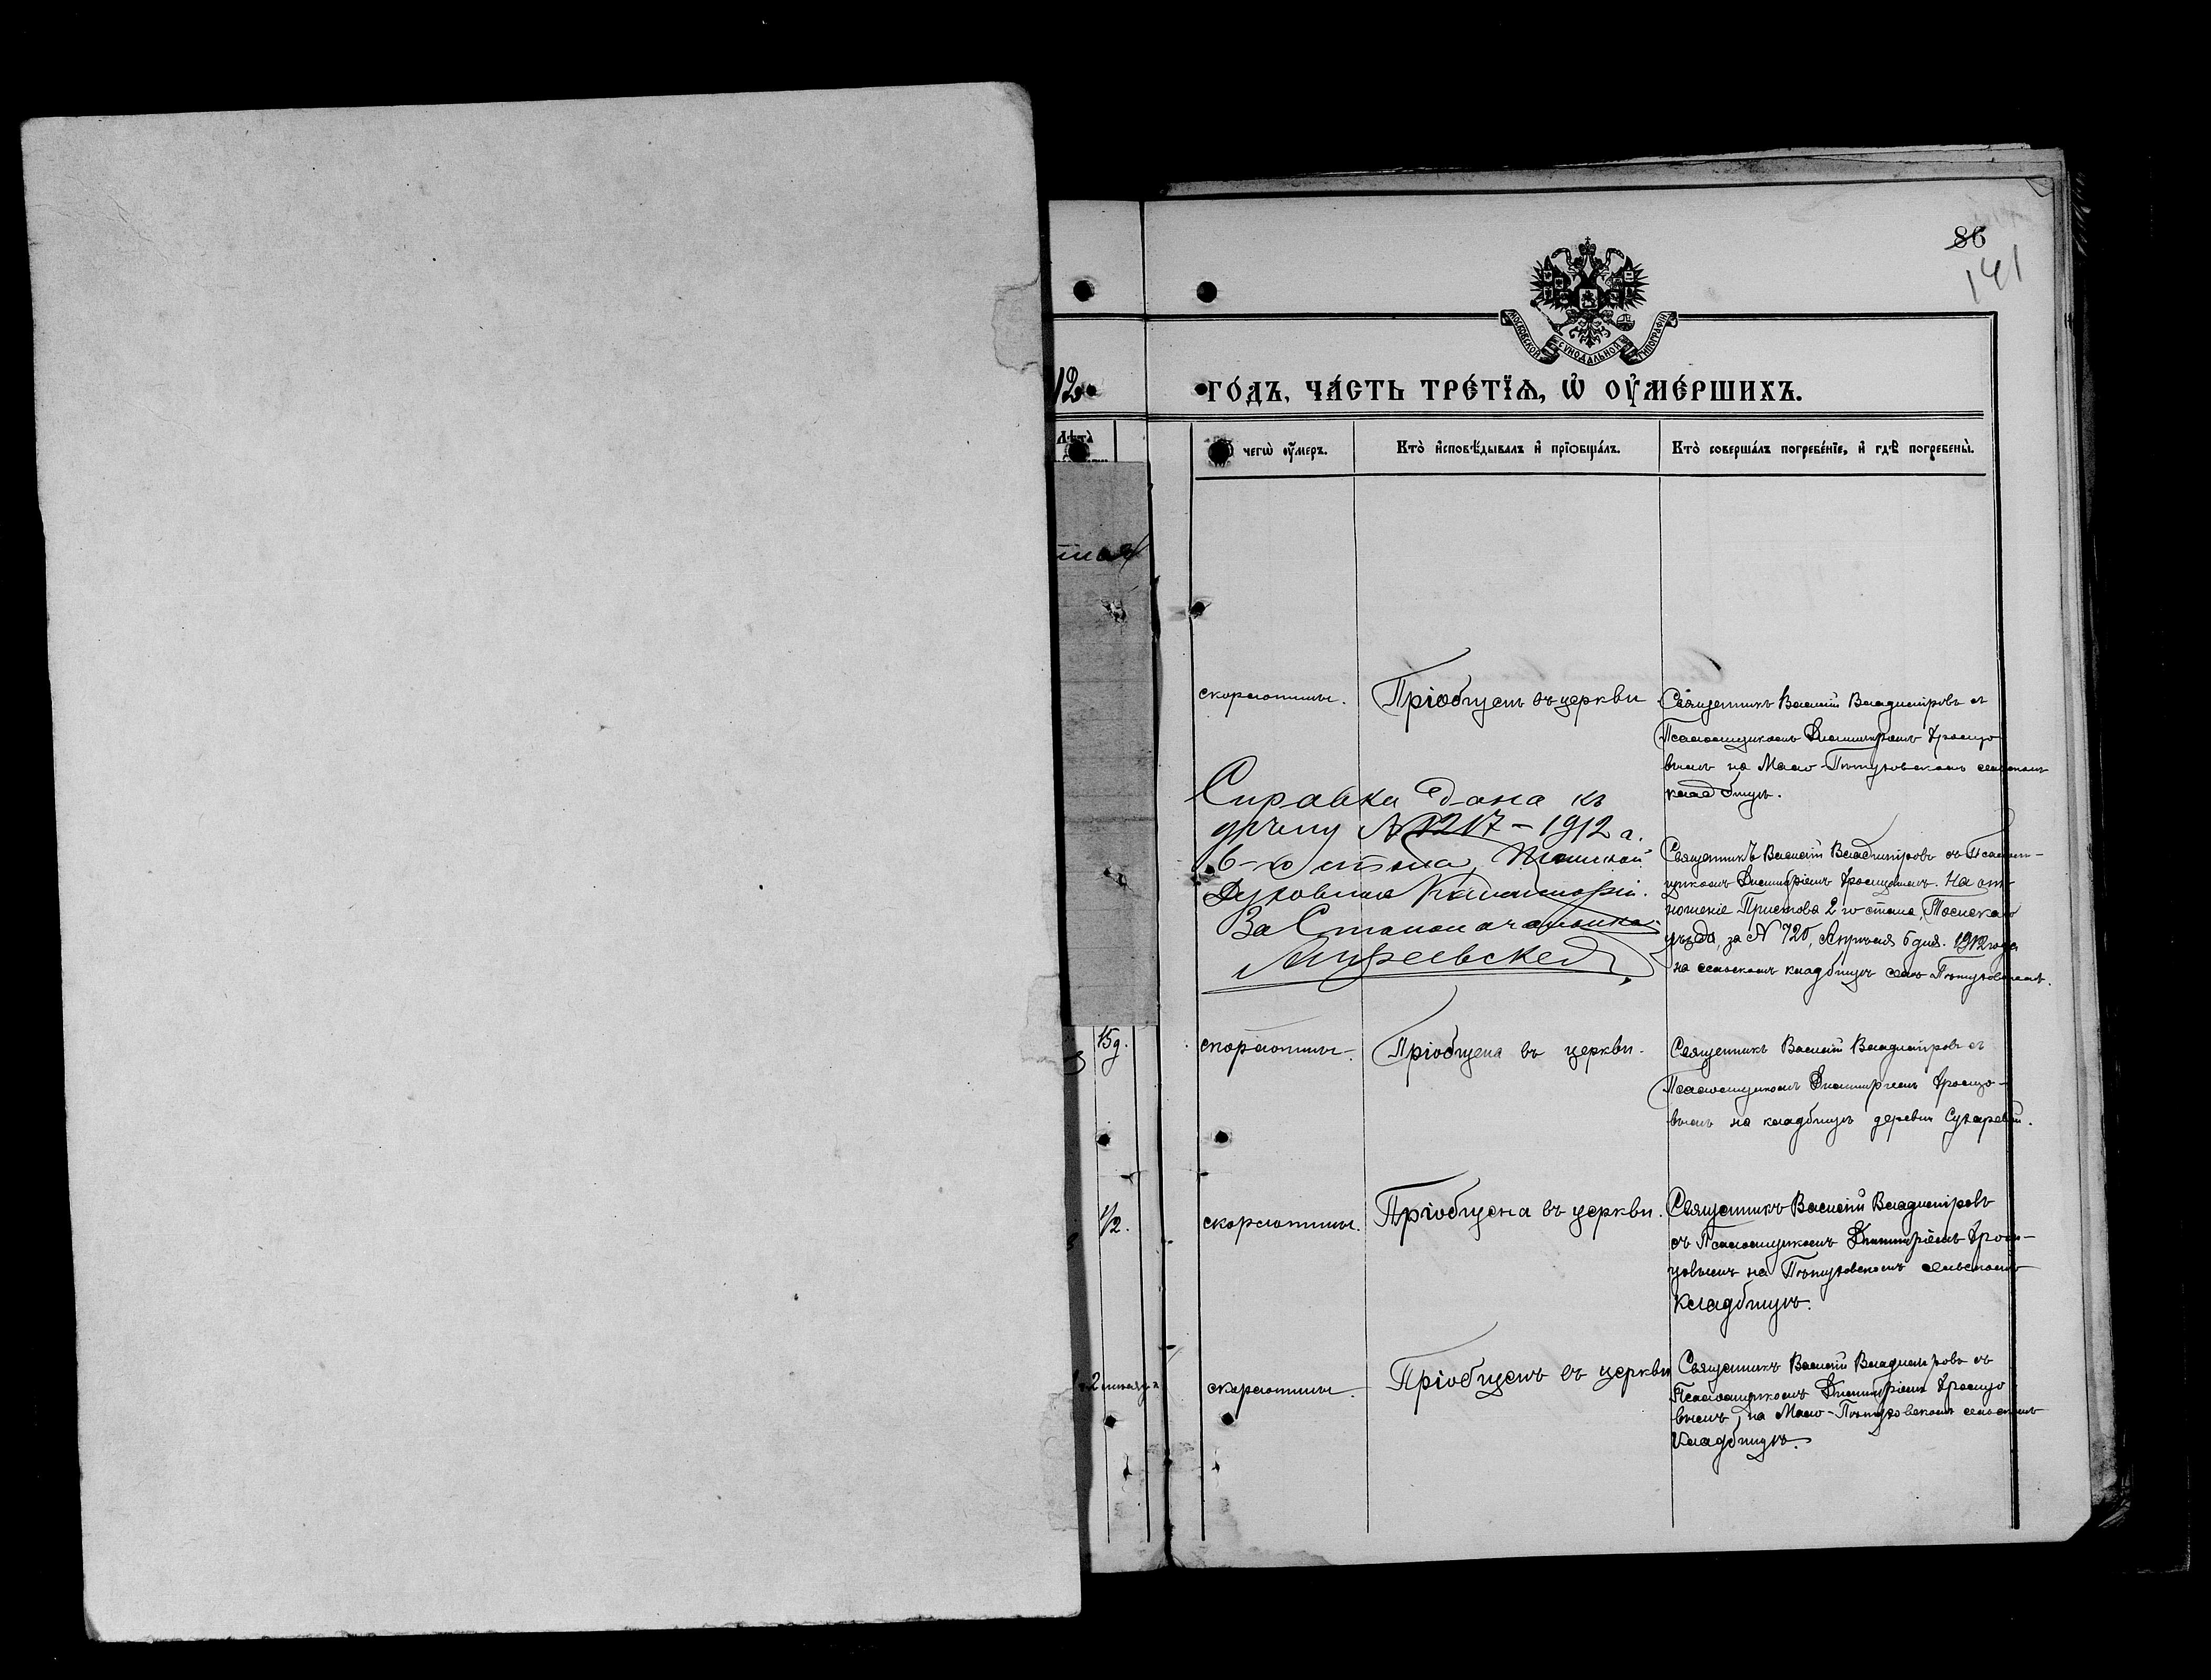 86
141
МОСКОВСКОЙ СѴНОДАЛЬНОЙ ТИПОГРАФІИ
12
ГО́ДЪ, ЧА́СТЬ ТРЕ́ТЇѦ, Ѡ҆ ОУ҆МЕ́РШИХЪ.
Лѣта̀
чегѡ̀ оу҆́меръ.
Кто̀ и҆сповѣ́дывалъ и҆ прїѡбща́лъ.
Кто̀ соверша́лъ погребе́нїе, и҆ гдѣ̀ погребены̀.
скорлотины.
Пріобщенъ въ церкви
Священникъ Василій Владиміровъ съ
Псаломщикомъ Димитріемъ
вымъ на Мало-Пѣтуховскомъ сельскомъ
кладбищѣ.
Справка дана къ
№ 1217 – 1912 г.
6-го стола Томской
Духовной Консисторіи.
За Столоначальника
Священникъ Василій Владиміровъ съ Псалом-
щикомъ Димитріемъ На от-
ношеніе Пристава 2 го стана, Томскаго
уѣзда, за № 720, Апрѣля 6 дня. 1912 года
на сельскомъ кладбищѣ селѣ Пѣтуховскомъ.
15 д.
скорлотины.
Пріобщена въ церкви.
Священникъ Василій Владиміровъ съ
Псаломщикомъ Димитріемъ
вымъ на кладбищѣ деревни Сухаревой.
1/2.
скорлотины.
Пріобщена въ церкви.
Священникъ Василій Владиміровъ
съ Псаломщикомъ Димитріемъ
на Пѣтуховскомъ сельскомъ
кладбищѣ.
скорлотины
Пріобщенъ въ церкви
Священникъ Василій Владиміровъ съ
Псаломщикомъ Димитріемъ
вымъ, на Мало-Пѣтуховскомъ сельскомъ
кладбищѣ.